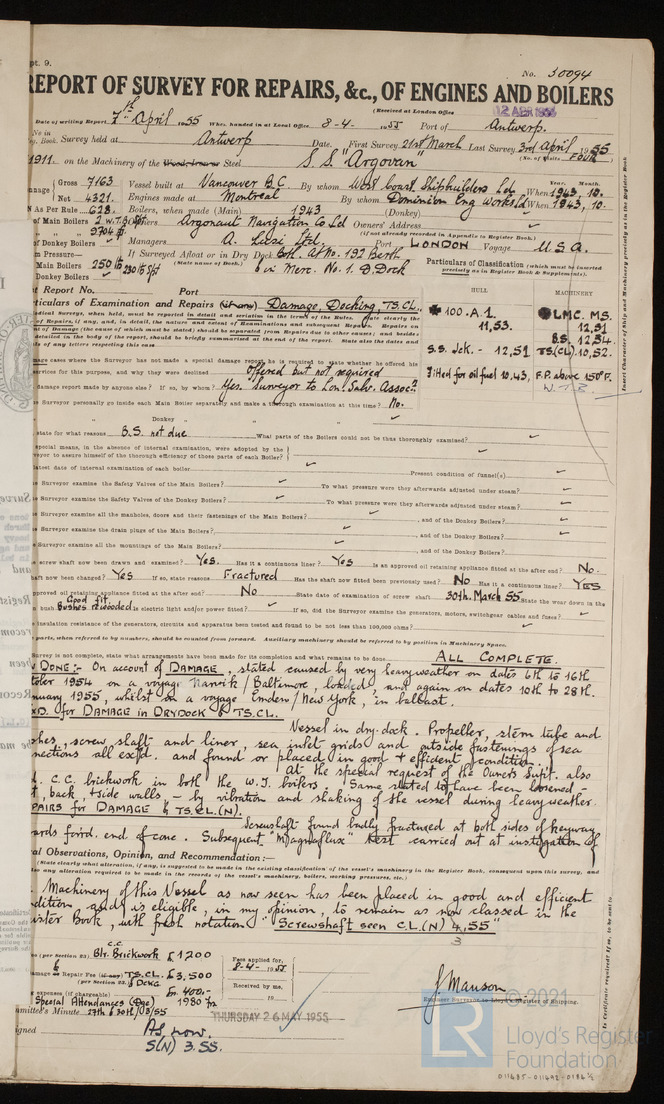 pt. 9.
No. 30094
REPORT OF SURVEY FOR REPAIRS, &c., OF ENGINES AND BOILERS
(Received at London Office 12 APR 1955
Date of writing Report 7th April 1955 When handed in at Local Office 8-4-1955 Port of Antwerp.
No in
Reg. Book. Survey held at Antwerp Date. First Survey 21st March Last Survey 3rd April 1955
(No. of Visits FOUR)
1911. on the Machinery of the Wood, Iron or Steel S.S. "Argovan"
Gross 7163 Vessel built at Vancouver B.C. By whom West Coast Shipbuilders Ld When 1943, 10.
Year. Month.
Net 4321. Engines made at Montreal By whom Dominion Eng Works Ld When 1943, 10.
As Per Rule 628. Boilers, when made (Main) 1943 (Donkey)
of Main Boilers 2 W.T.B. Owners Argonaut Navigation Co Ld Owners' Address
(if not already recorded in Appendix to Register Book.)
of Donkey Boilers Managers A. Lusi Ltd. Port LONDON Voyage U.S.A.
m Pressure— If Surveyed Afloat or in Dry Dock Both. At No. 192 Berth
(State name of Dock.)
Main Boilers 250 lb 6 in Merc. No. 1. D. Dock
Donkey Boilers
Particulars of Classification (which must be inserted precisely as in Register Book & Supplements).
t Report No. Port
HULL MACHINERY
rticulars of Examination and Repairs (if any) Damage, Docking, TS.CL.
100.A.1. LMC. M.S.
11,53. 12,51
B.S. 12,54.
S.S. Jck. - 12,51 TS.(CL) 10,52.
Fitted for oil fuel 10.43, F.P. above 150°F.
Insert Character of Ship and Machinery precisely as in the Register Book
age cases where the Surveyor has not made a special damage report he is required to state whether he offered his
services for this purpose, and why they were declined Offered but not required
damage report made by anyone else? If so, by whom? Yes. Surveyor to Lon. Salv. Assocn
Surveyor personally go inside each Main Boiler separately and make a thorough examination at this time? No.
" " Donkey " "
state for what reasons B.S. not due What parts of the Boilers could not be thoroughly examined?
special means, in the absence of internal examination, were adopted by the
veyor to assure himself of the thorough efficiency of those parts of each Boiler?
latest date of internal examination of each boiler Present condition of funnel(s)
Surveyor examine the Safety Valves of the Main Boilers? To what pressure were they afterwards adjusted under steam?
Surveyor examine the Safety Valves of the Donkey Boilers? To what pressure were they afterwards adjusted under steam?
Surveyor examine all the manholes, doors and their fastenings of the Main Boilers? , and of the Donkey Boilers?
Surveyor examine the drain plugs of the Main Boilers? , and of the Donkey Boilers?
Surveyor examine all the mountings of the Main Boilers? , and of the Donkey Boilers?
screw shaft now been drawn and examined? Yes. Has it a continuous liner? Yes Is an approved oil retaining appliance fitted at the after end? No.
aft now been changed? Yes If so, state reasons Fractured Has the shaft now fitted been previously used? No Has it a continuous liner? YES
pproved oil retaining appliance fitted at the after end? No State date of examination of screw shaft 30th. March 55. State the wear down in the
n bush Good fit. Bushes rewooded Is electric light and/or power fitted? If so, did the Surveyor examine the generators, motors, switchgear cables and fuses?
insulation resistance of the generators, circuits and apparatus been tested and found to be not less than 100,000 ohms?
parts, when referred to by numbers, should be counted from forward. Auxiliary machinery should be referred to by position in Machinery Space.
Survey is not complete, state what arrangements have been made for its completion and what remains to be done ALL COMPLETE.
DONE:- On account of DAMAGE, stated caused by very heavy weather on dates 6th to 16th
tober 1954 on a voyage Narvik / Baltimore, loaded, and again on dates 10th to 28th.
nuary 1955, whilst on a voyage Emden / New York, in ballast.
for DAMAGE in DRYDOCK & TS.CL.
Vessel in dry-dock. Propeller, stern tube and
shes, screw shaft and liner, sea inlet grids and outside fastenings of sea
nections all exd. and found or placed in good & efficient condition.
At the special request of the Owners Supt. also
C.C. brickwork in both the W.T. boilers. Same stated to have been loosened
back, & side walls - by vibration and shaking of the vessel during heavy weather.
PAIRS for DAMAGE & TS.CL.(N).
Screwshaft found badly fractured at both sides of keyway
ards forrd. end of cone. Subsequent "Magnaflux" test carried out at instigation of
al Observations, Opinion, and Recommendation:—
(State clearly what alteration, if any, is suggested to be made in the existing classification of the vessel's machinery in the Register Book, consequent upon this survey, and
Machinery of this Vessel as now seen has been placed in good and efficient
dition and is eligible, in my opinion, to remain as now classed in the
ister Book, with fresh notation "Screwshaft seen C.L.(N) 4,55"
3
C.C.
(per Section 23) Blr. Brickwork £1200
Fees applied for,
8-4-1955
Damage or Repair Fee (if any) TS.CL. £3,500
(per Section 23) & Dckg.
Received by me,
expenses (if chargeable) Fr. 400.-
19
Special Attendances 1980 frs
27th & 30th/03/55
J. Manson
Engineer Surveyor to Lloyd's Register of Shipping.
mittee's Minute THURSDAY 26 MAY 1955
igned As now.
S(N) 3.55.
© 2021
LR
Lloyd's Register
Foundation
011485-011492-0184 1/2